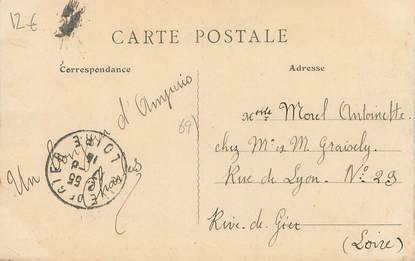 12€
CARTE POSTALE
Correspondance
Adresse
Un bonjour d'Ampuis
69)
Melle Morel Antoinette.
chez Mr et M. Graisely.
Rue de Lyon. No 29
Rive. de Gier
(Loire)
LOIRE